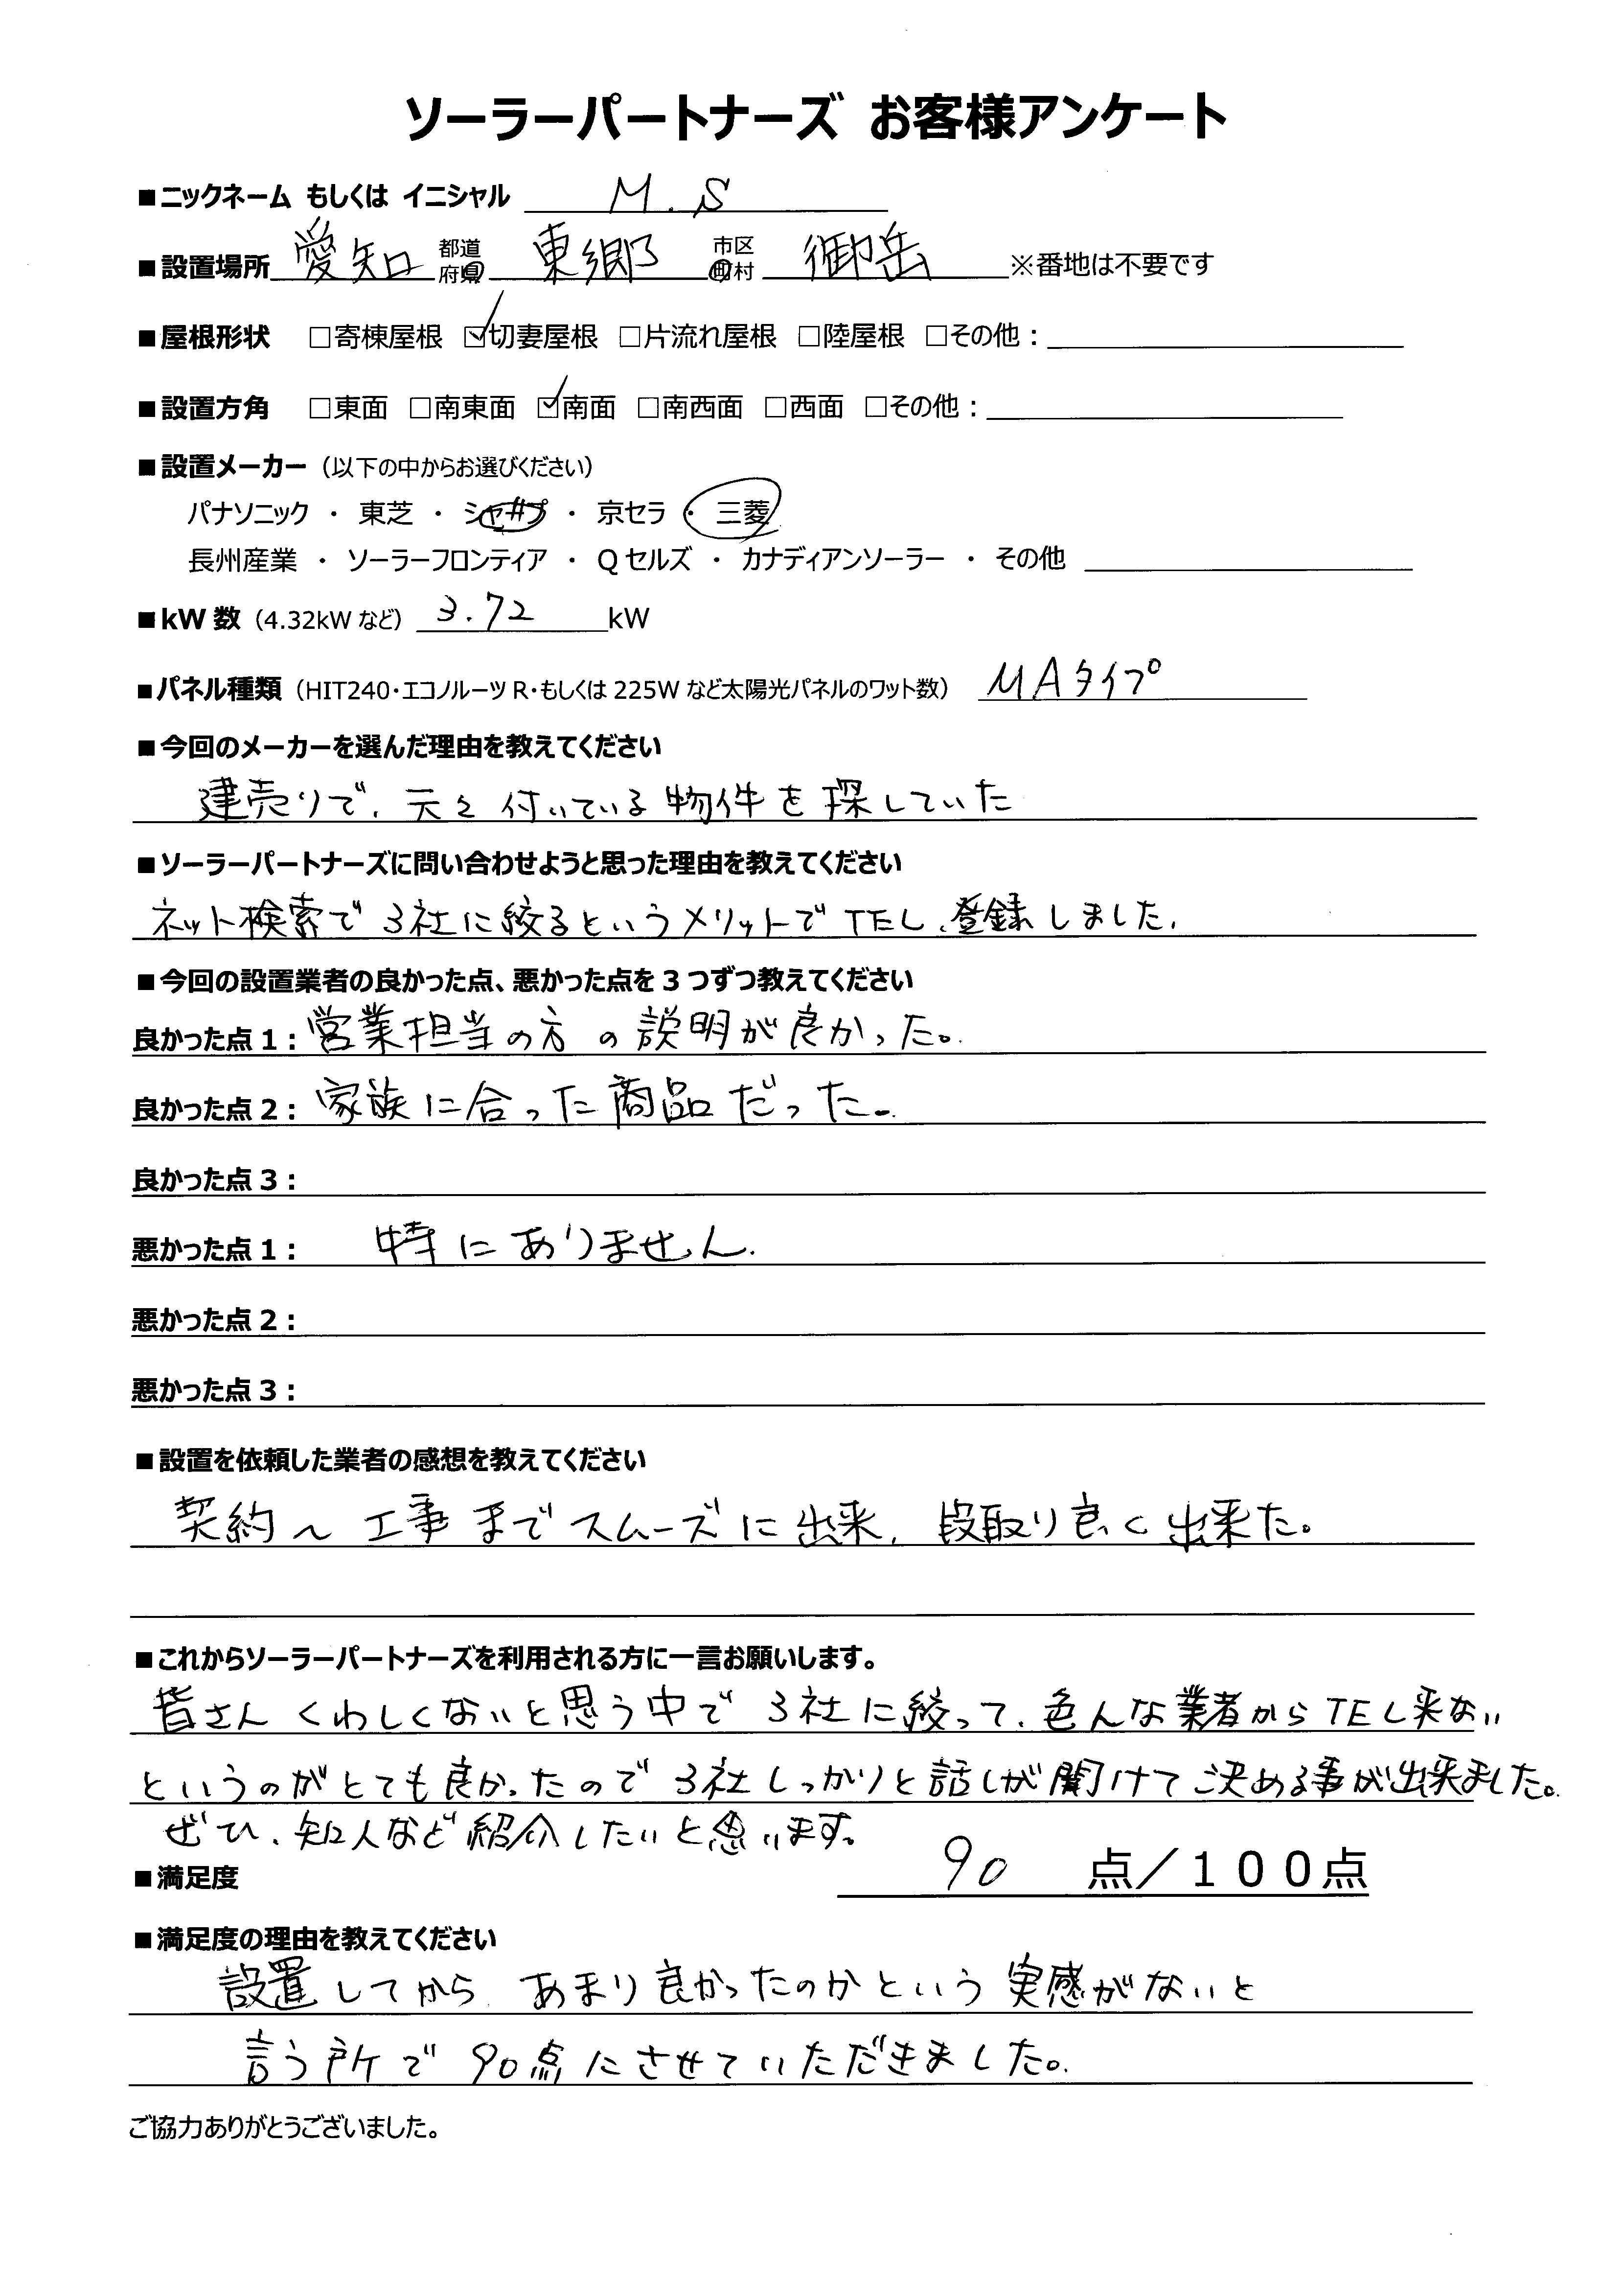 ソーラーパートナーズ お客様アンケート
■ニックネーム もしくは イニシャル M.S
■設置場所 愛知 都道府県 東郷 市区町村 御岳 ※番地は不要です
■屋根形状 □寄棟屋根 ☑切妻屋根 □片流れ屋根 □陸屋根 □その他：
■設置方角 □東面 □南東面 ☑南面 □南西面 □西面 □その他：
■設置メーカー（以下の中からお選びください）
パナソニック ・ 東芝 ・ シャープ ・ 京セラ ・ 三菱
長州産業 ・ ソーラーフロンティア ・ Qセルズ ・ カナディアンソーラー ・ その他
■kW数（4.32kWなど） 3.72 kW
■パネル種類（HIT240・エコノルーツR・もしくは225Wなど太陽光パネルのワット数） MAタイプ
■今回のメーカーを選んだ理由を教えてください
建売りで、元々付いている物件を探していた
■ソーラーパートナーズに問い合わせようと思った理由を教えてください
ネット検索で3社に絞るというメリットでTEL、登録しました。
■今回の設置業者の良かった点、悪かった点を3つずつ教えてください
良かった点1：営業担当の方の説明が良かった。
良かった点2：家族に合った商品だった。
良かった点3：
悪かった点1：特にありません.
悪かった点2：
悪かった点3：
■設置を依頼した業者の感想を教えてください
契約〜工事までスムーズに出来、段取り良く出来た。
■これからソーラーパートナーズを利用される方に一言お願いします。
皆さんくわしくないと思う中で3社に絞って、色んな業者からTEL来ない
というのがとても良かったので3社しっかりと話しが聞けて決める事が出来ました。
ぜひ、知人など紹介したいと思います。
■満足度 90 点／100点
■満足度の理由を教えてください
設置してから、あまり良かったのかという実感がないと
言う所で90点にさせていただきました。
ご協力ありがとうございました。